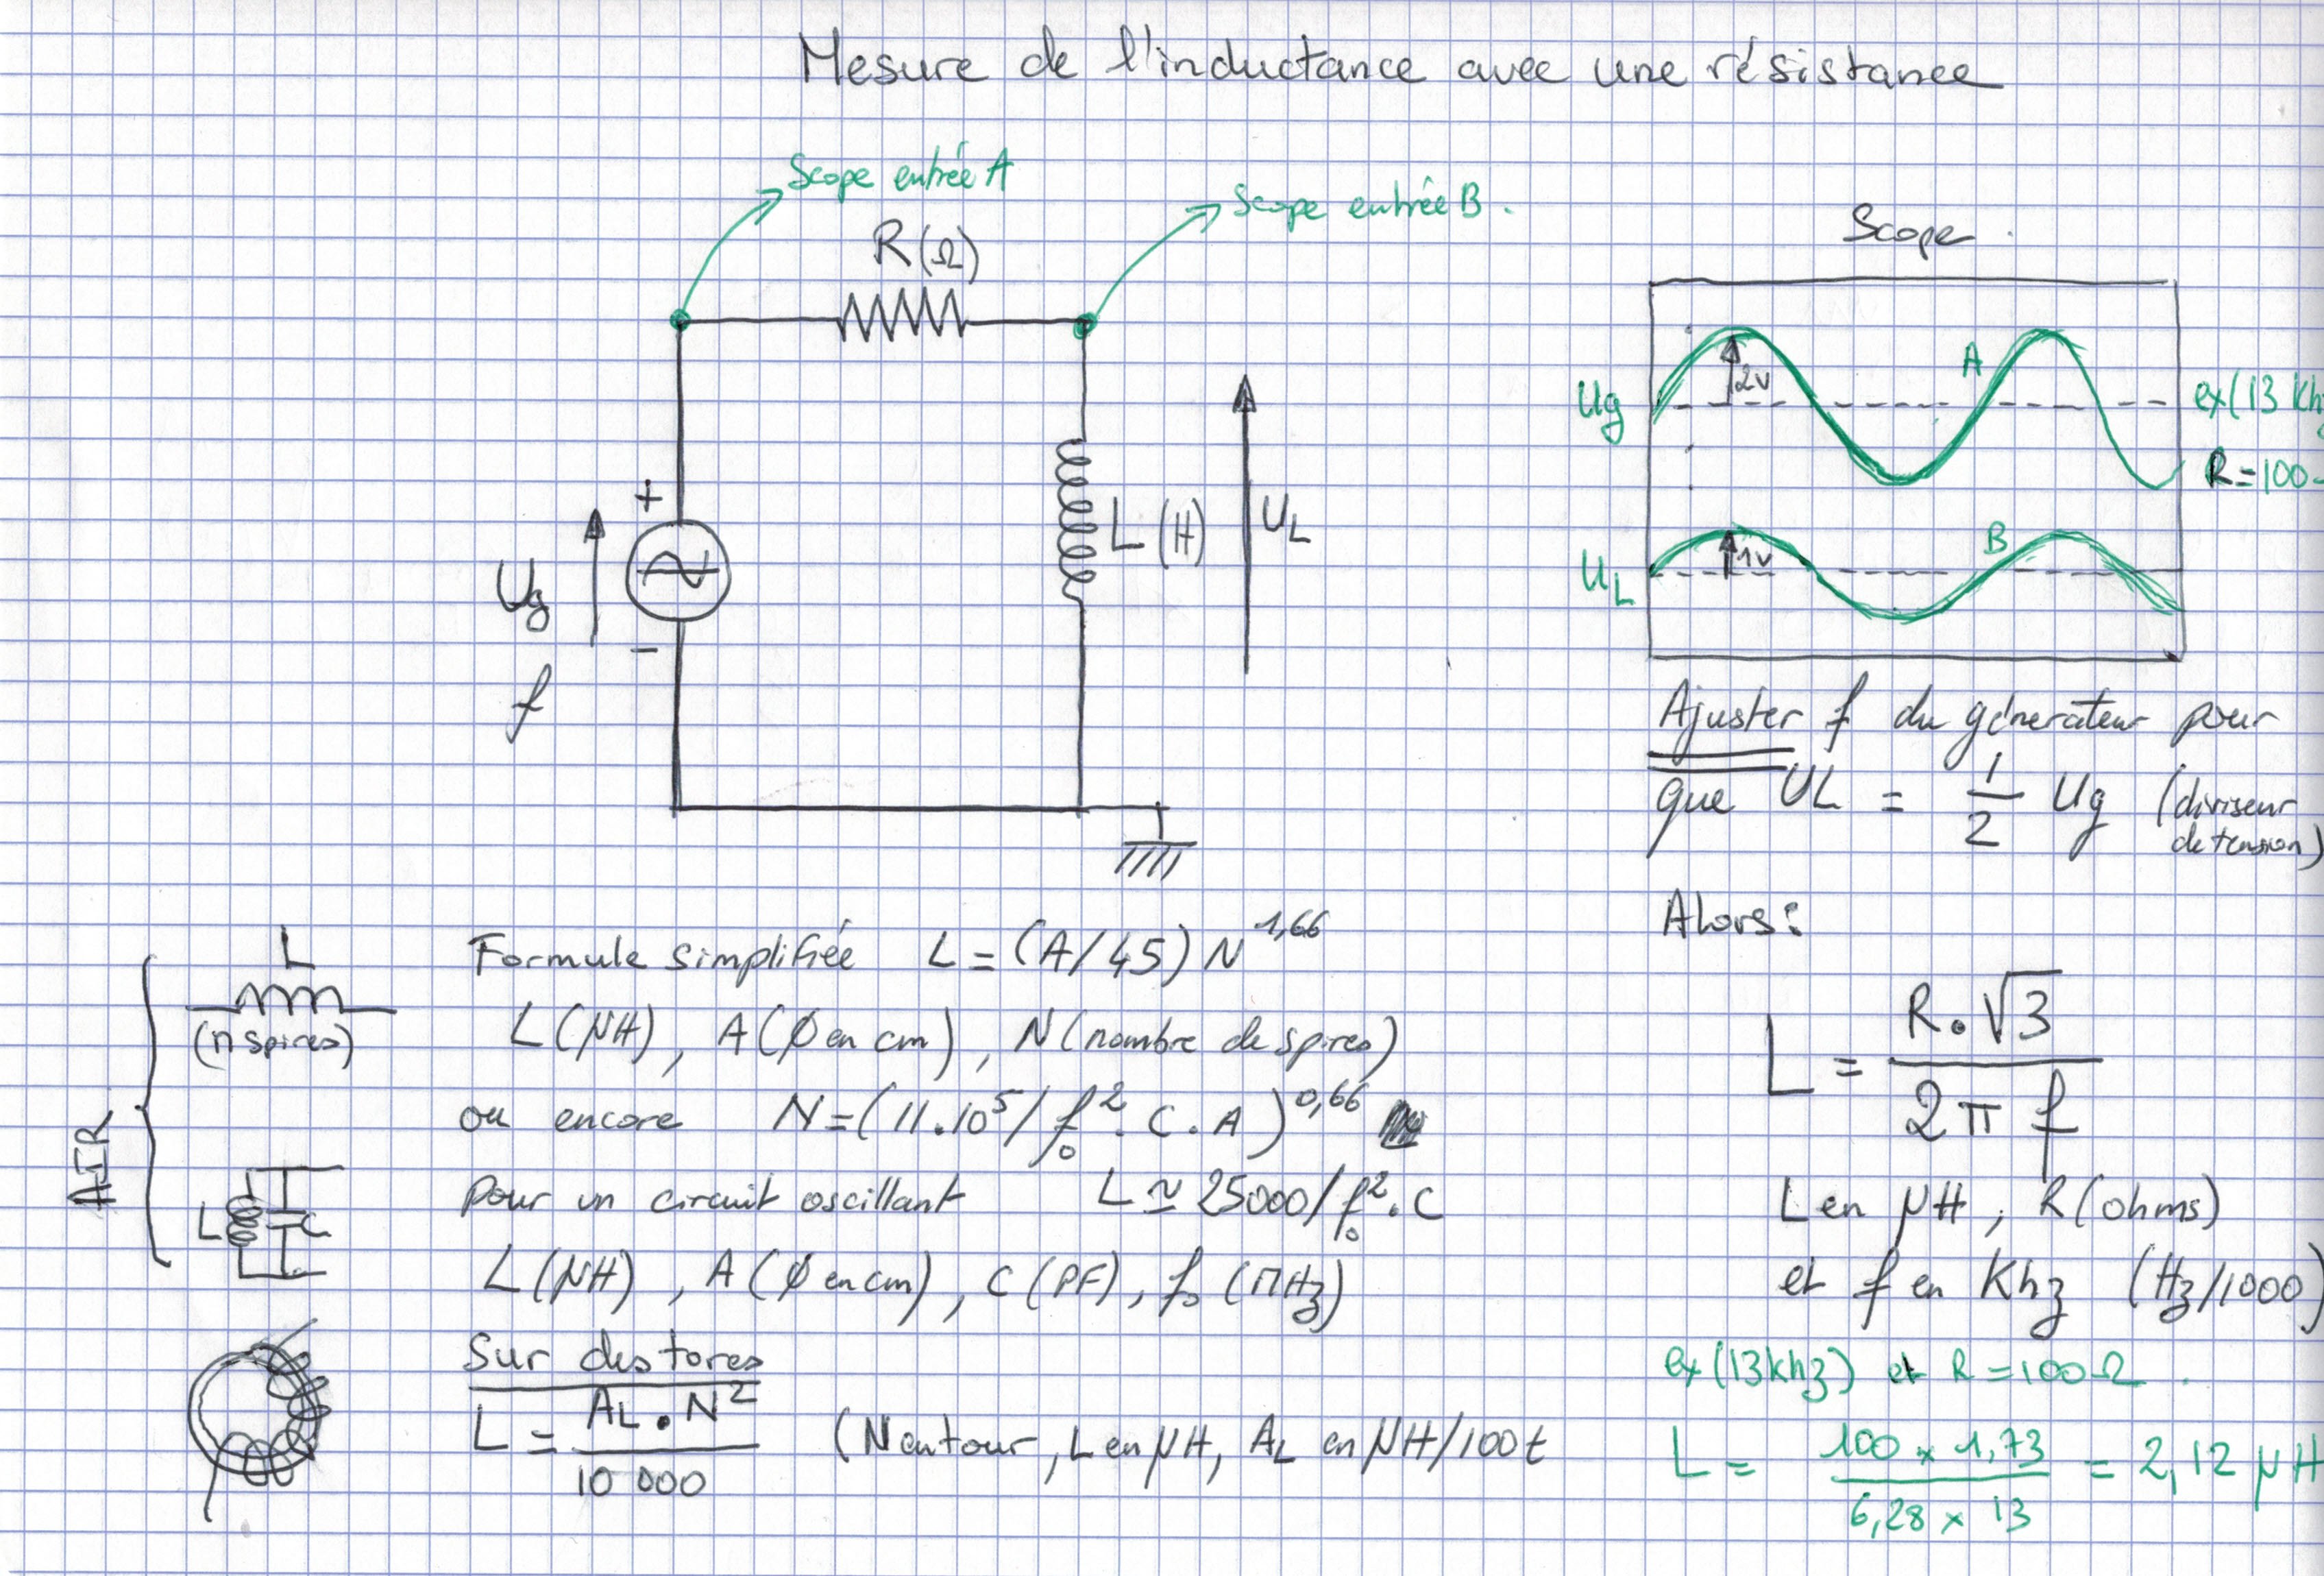 Mesure de l'inductance avec une résistance
Scope entrée A
Scope entrée B.
R(Ω)
+
Ug
-
f
L (H)
UL
Scope.
Ug
2v
A
ex(13 Kh
R=100
UL
1v
B
Ajuster f du génerateur pour
que UL = 1/2 Ug (diviseur
de tension)
Alors:
L = R.√3 / 2π f
L en µH, R(ohms)
et f en Khz (Hz/1000)
ex(13khz) et R=100Ω.
L = 100 x 1,73 / 6,28 x 13 = 2,12 µH
AIR
L
(n spires)
Formule simplifiée L = (A/45) N^1,66
L(µH), A(∅ en cm), N(nombre de spires)
ou encore N=(11.10^5/f₀².C.A)^0,66
pour un circuit oscillant L ≃ 25000/f₀².C
L
C
L(µH), A(∅ en cm), C(PF), f₀(MHz)
Sur des tores
L = AL.N² / 10 000 (N en tour, L en µH, AL en µH/100t